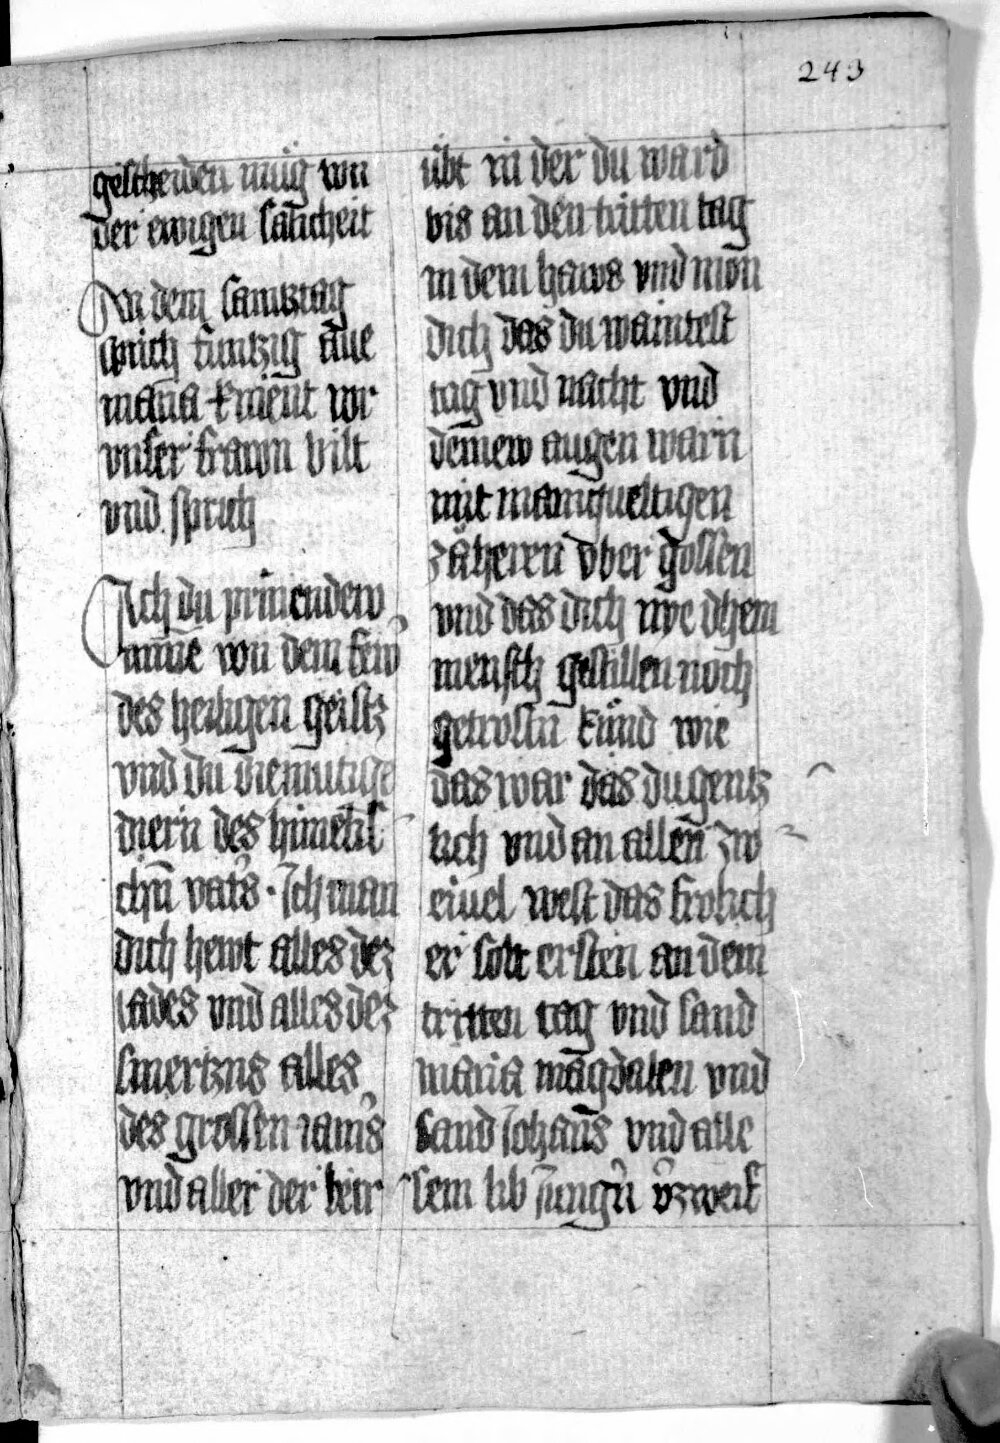 243
gescheiden müg von
der ewigen sälicheit
An dem samtztag
sprich funtzig aue
maria knient vor
vnser frawn bilt
vnd sprich
Ich du prinendew
minne von dem fewr
des heiligen geistz
vnd du diemutige
diern des himelis
chen vaters · Ich man
dich hewt alles dez
laides vnd alles dez
smertzns alles
des grossen iamers
vnd aller der betr
übt in der du ward
bis an den tritten tag
in dem haws vnd mon
dich das du waintest
tag vnd nacht vnd
deinew augen warn
mit manigueltigen
zäheren vber gossen
vnd das dich nye dhem
mensch gestillen noch
getrostn künd wie
das wär das du gentz
lich vnd an allen zw
eiuel west das frölich
er solt ersten an dem
tritten tag vnd sand
maria magdalen vnd
sand Johans vnd alle
sein lib iungern verzweif